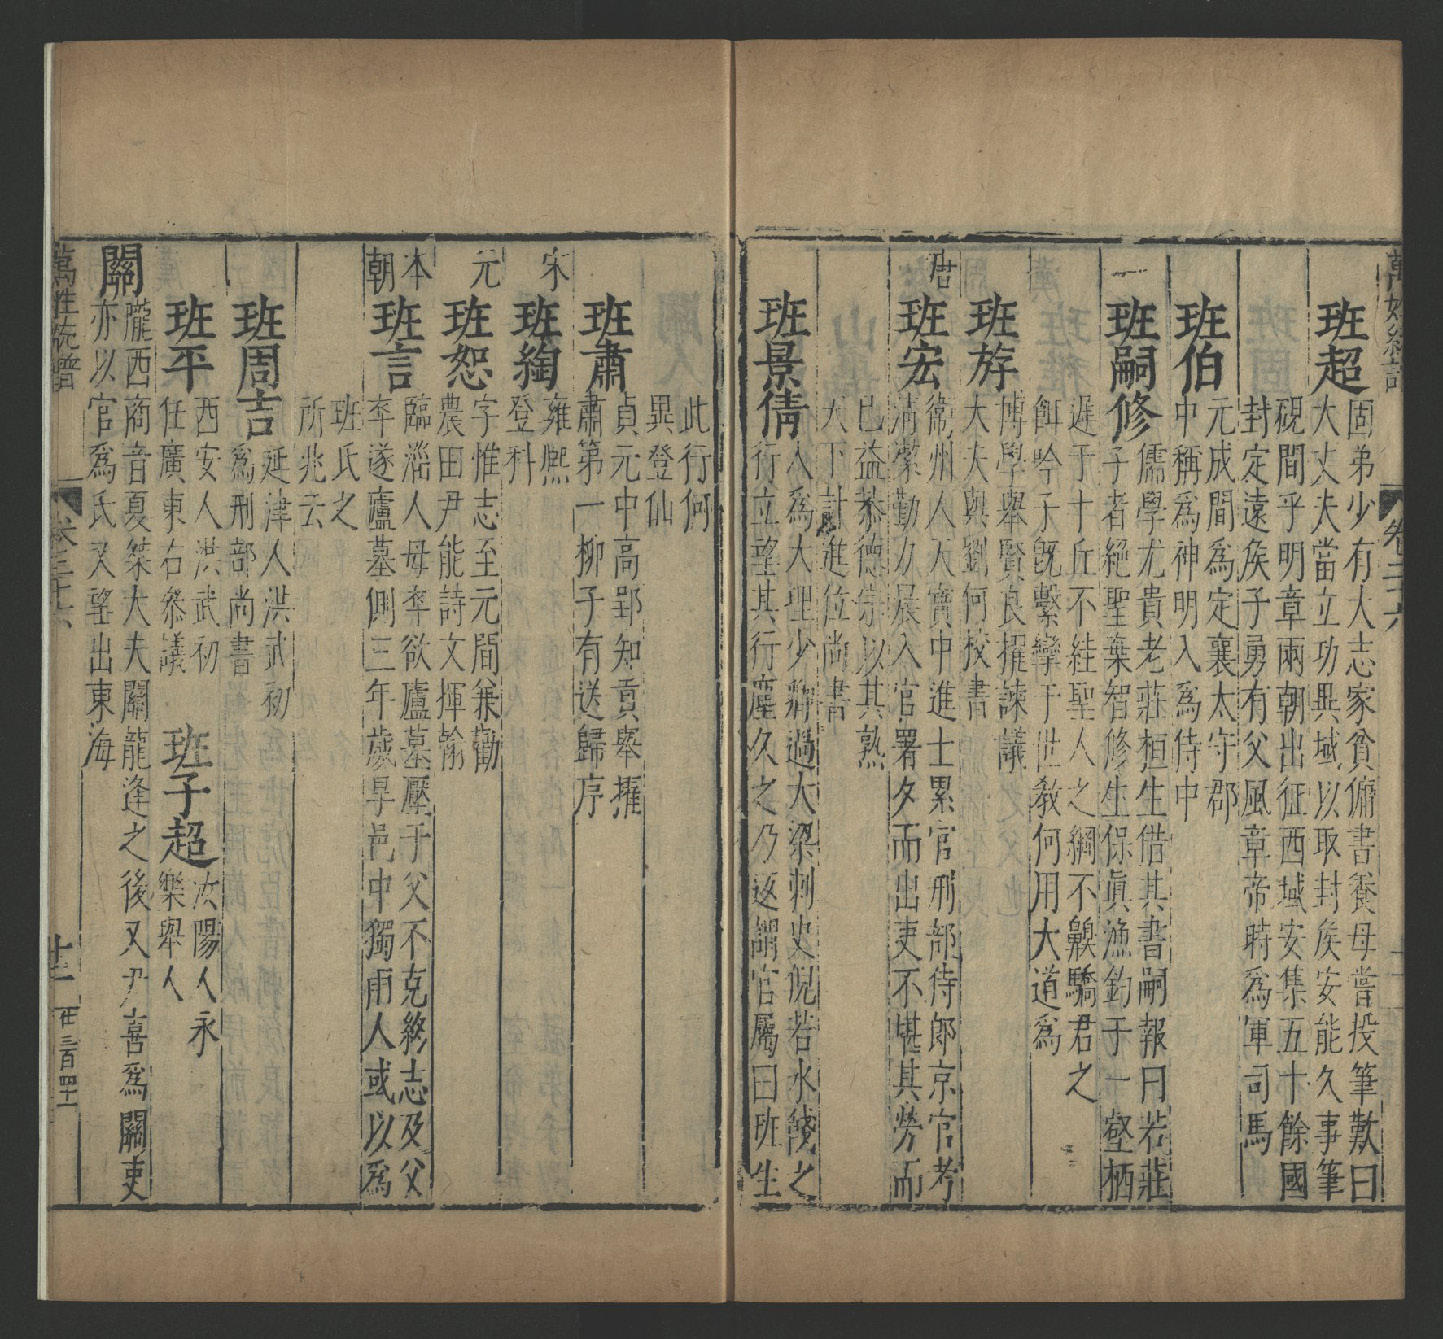 班超
固弟少有大志家貧傭書養母嘗投筆歎曰
大丈夫當立功異域以取封矦安能久事筆
硯間乎明章兩朝出征西域安集五十餘國
封定遠矦子勇有父風章帝時爲軍司馬
班伯
元成間爲定襄太守郡
中稱爲神明入爲侍中
班嗣
儒學尤貴老莊桓生借其書嗣報曰若莊
修子者絕聖棄智修生保眞漁釣于一壑栖
遲于十丘不絓聖人之網不齅驕君之
餌吟子旣繫攣于世教何用大道爲
班斿
博學舉賢良擢諫議
大夫與劉何校書
唐
班宏
衛州人天寶中進士累官刑部侍郎京官考
淸潔勤力晨入官署夕而出吏不堪其勞而
已益恭德宗以其熟
天下計進位尚書
班景倩
人爲大理少卿過大梁刺史倪若水餞之
行立望其行塵久之乃返謂官屬曰班生
此行何
異登仙
班肅
貞元中高郢知貢舉擢
肅第一柳子有送歸序
宋
班絢
雍熙
登科
元
班恕
字惟志至元間兼勸
農田尹能詩文揮翰
本朝
班言
臨淄人母卒欲廬墓壓于父不克終志及父
卒遂廬墓側三年歲旱邑中獨雨人或以爲
班氏之
所兆云
班周吉
延津人洪武初
爲刑部尚書
班平
西安人洪武初
任廣東右叅議
班子超
汝陽人永
樂舉人
關
隴西商音夏桀大夫關龍逄之後又尹喜爲關吏
亦以官爲氏又望出東海
萬姓統譜
卷二十六